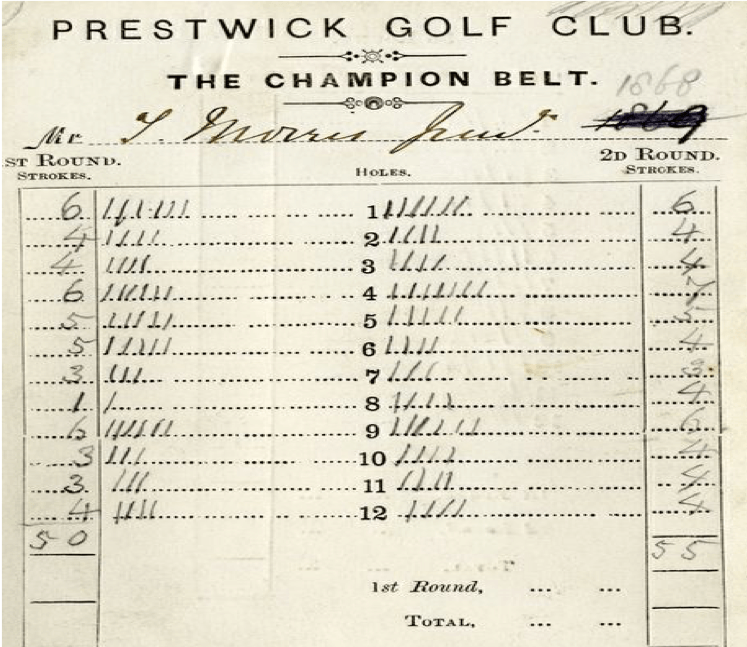 PRESTWICK GOLF CLUB.
THE CHAMPION BELT. 1868
Mr T. Morris Junr. 1869
1ST ROUND. 2D ROUND.
STROKES. HOLES. STROKES.
6 1 6
4 2 4
4 3 4
6 4 7
5 5 5
5 6 4
3 7 3
1 8 4
6 9 6
3 10 4
3 11 4
4 12 4
50 55
1st Round, ... ...
TOTAL, ... ...